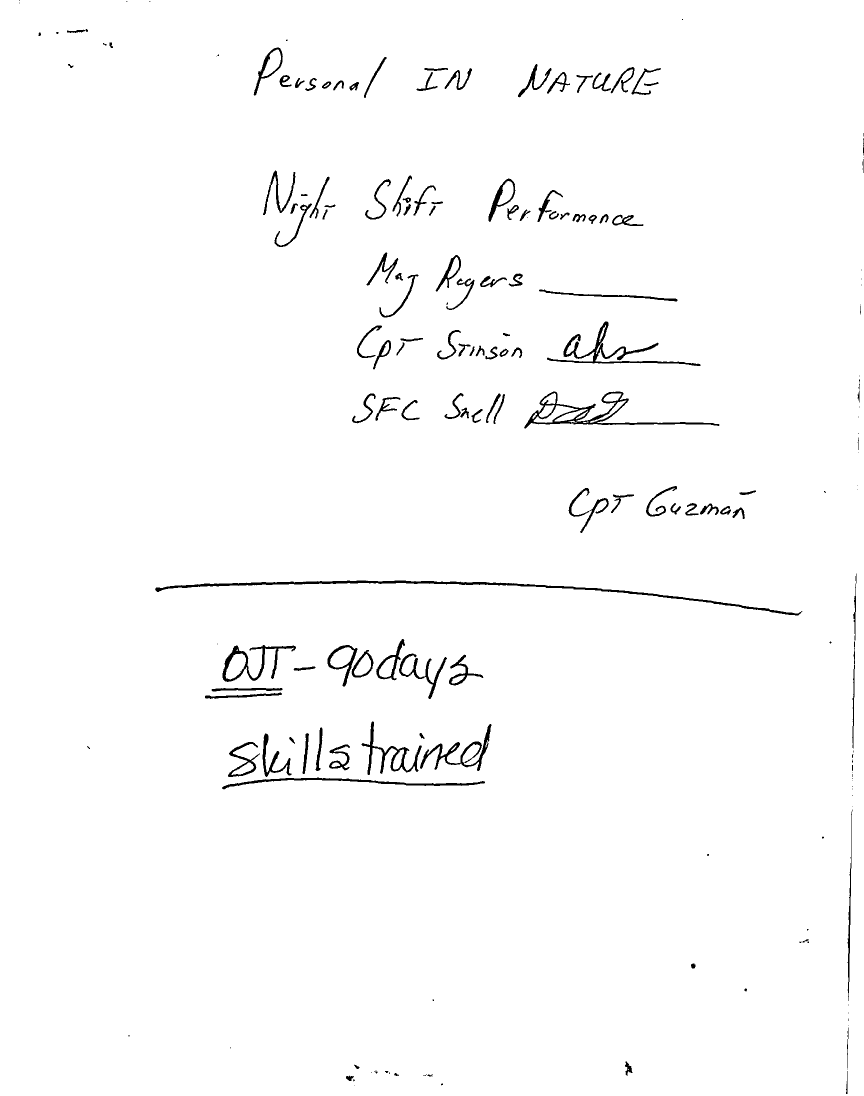 Personal IN NATURE
Night Shift Performance
Maj Rogers
Cpt Stinson ahs
SFC Snell
Cpt Guzman
OJT - 90 days
skills trained